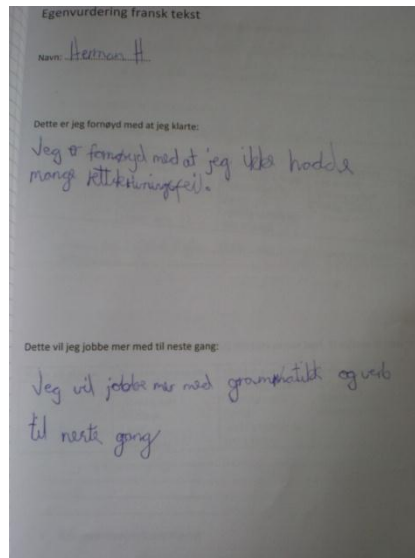 Egenvurdering fransk tekst
Navn: Herman H
Dette er jeg fornøyd med at jeg klarte:
Jeg er fornøyd med at jeg ikke hadde
mange rettskrivningsfeil.
Dette vil jeg jobbe mer med til neste gang:
Jeg vil jobbe mer med gramphatikk og verb
til neste gang